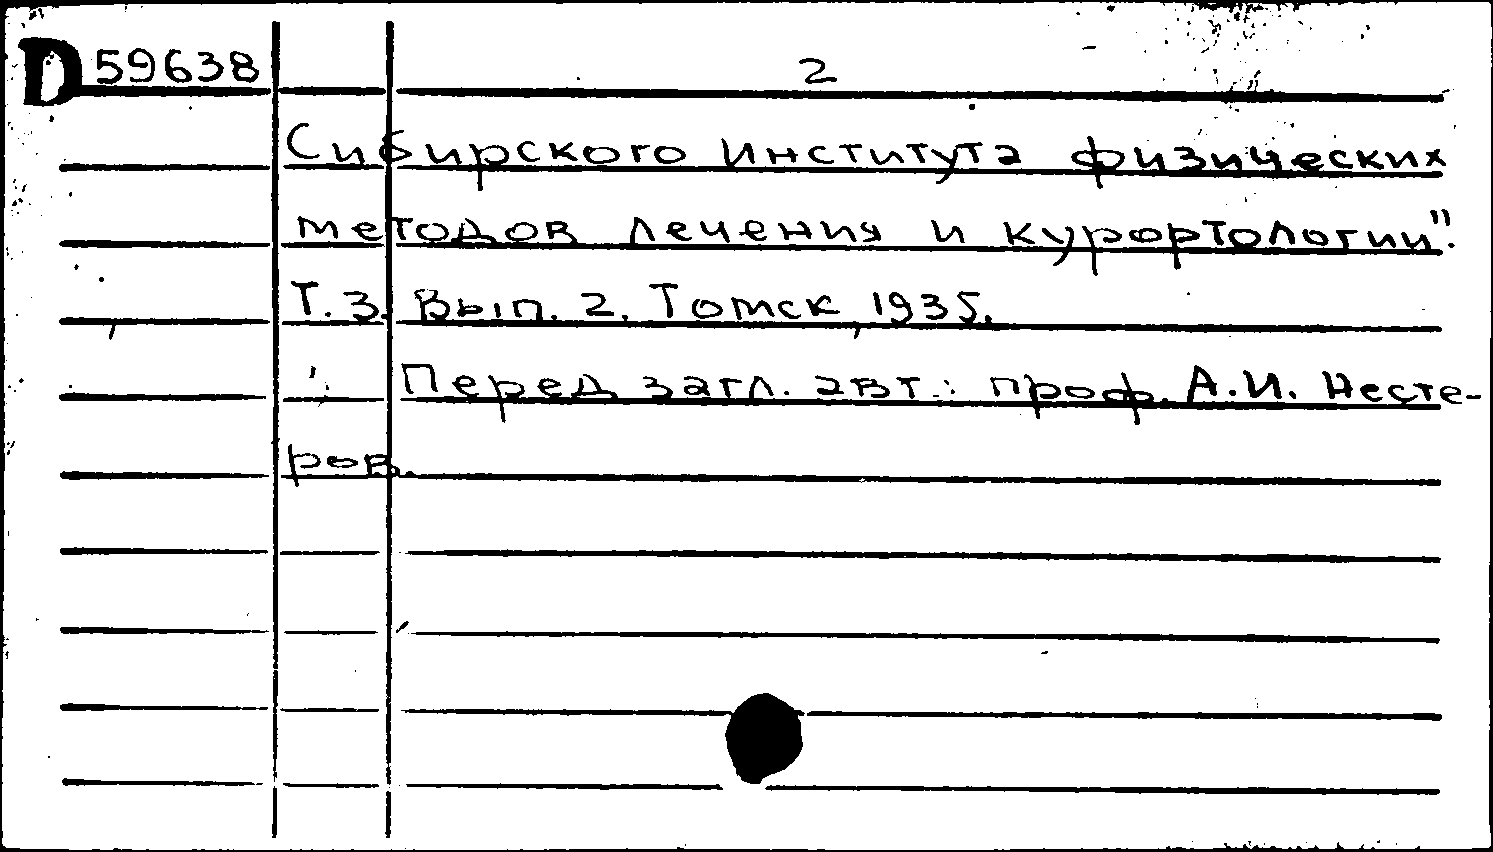 D 59638 2
Сибирского Института физических
методов лечения и курортологии".
Т. 3. Вып. 2. Томск, 1935.
Перед загл. авт.: проф. А.И. Несте-
ров.